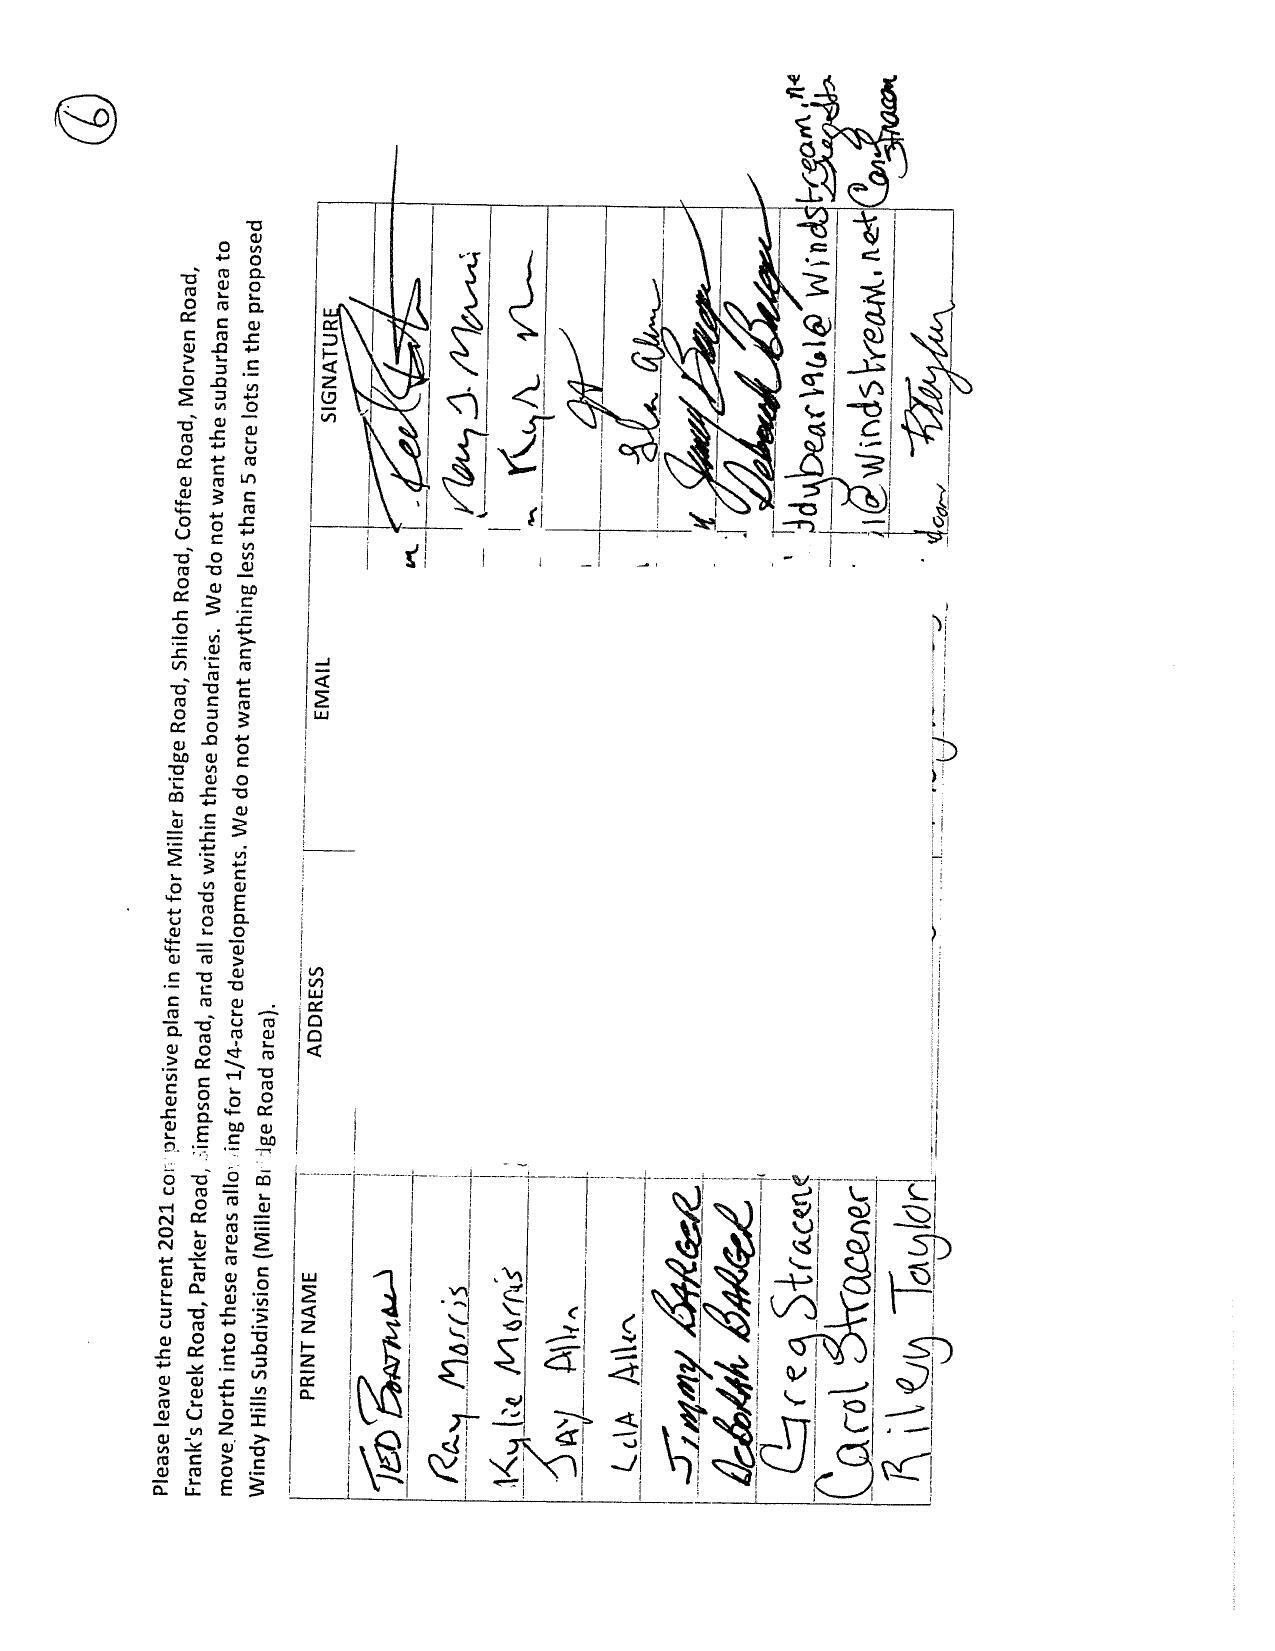 6
Please leave the current 2021 comprehensive plan in effect for Miller Bridge Road, Shiloh Road, Coffee Road, Morven Road,
Frank's Creek Road, Parker Road, Simpson Road, and all roads within these boundaries. We do not want the suburban area to
move North into these areas allowing for 1/4-acre developments. We do not want anything less than 5 acre lots in the proposed
Windy Hills Subdivision (Miller Bridge Road area).
PRINT NAME ADDRESS EMAIL SIGNATURE
TED BOATMAN
Ray Morris Ray J. Morris
Kylie Morris
JAY Allen
Lela Allen
JIMMY BARGER Jimmy Barger
DEBORAH BARGER Deborah Barger
Greg Stracene ddybear1961@windstream.ne
Carol Stracener 1@windstream.net Carol
Riley Taylor RTaylor